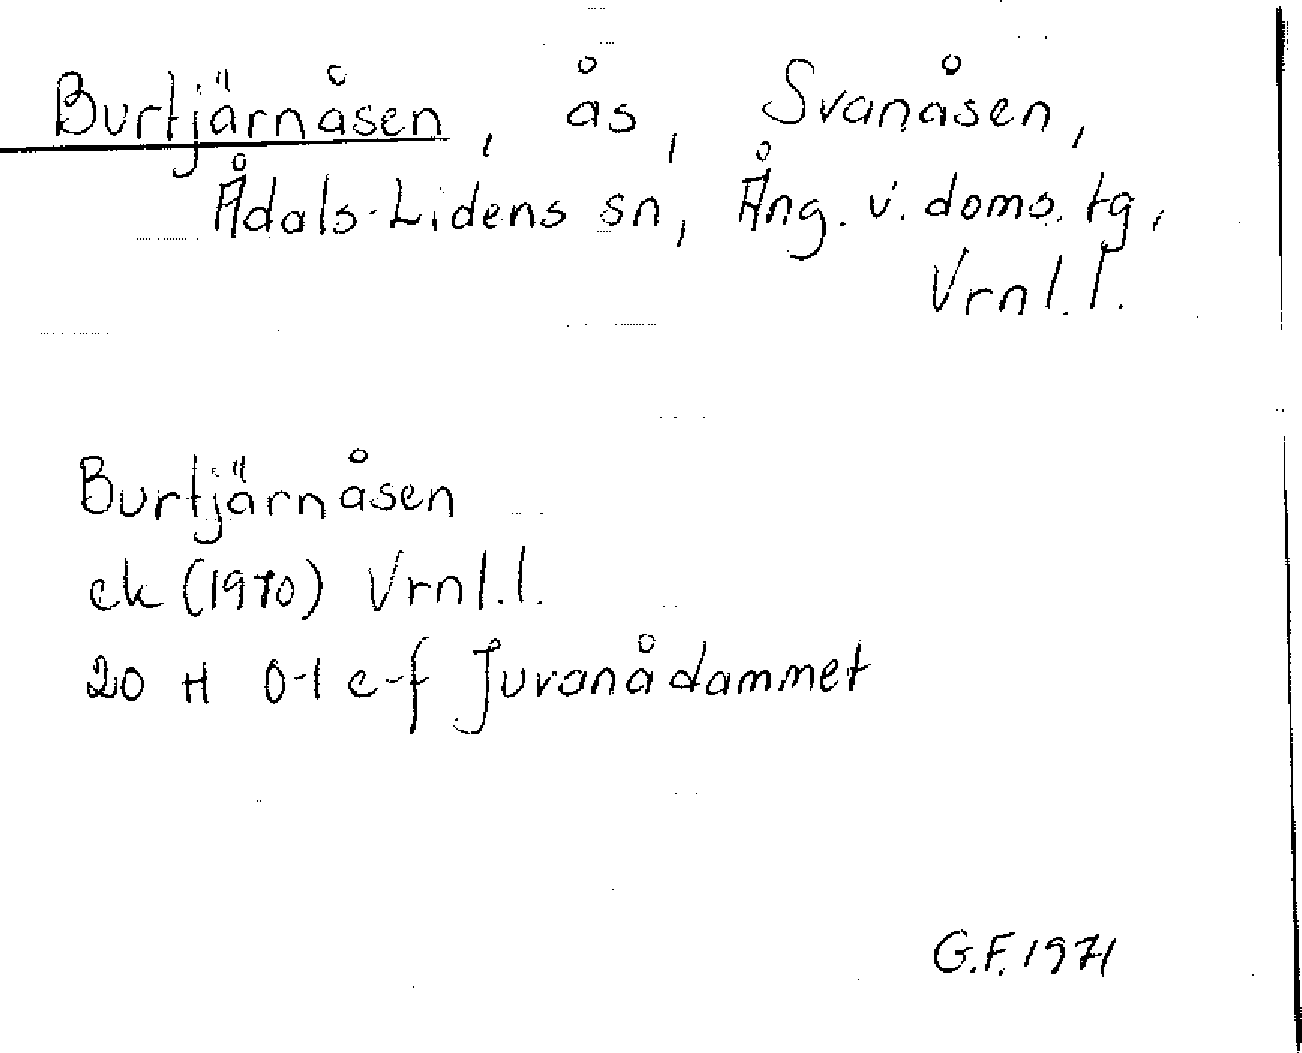 Burtjärnåsen, ås, Svanåsen,
Ådals-Lidens sn, Ång. v. doms. tg,
Vrnl. l.
Burtjärnåsen
ek (1970) Vrnl. l.
20 H 0-1 e-f Juvanådammet
G.F. 1971